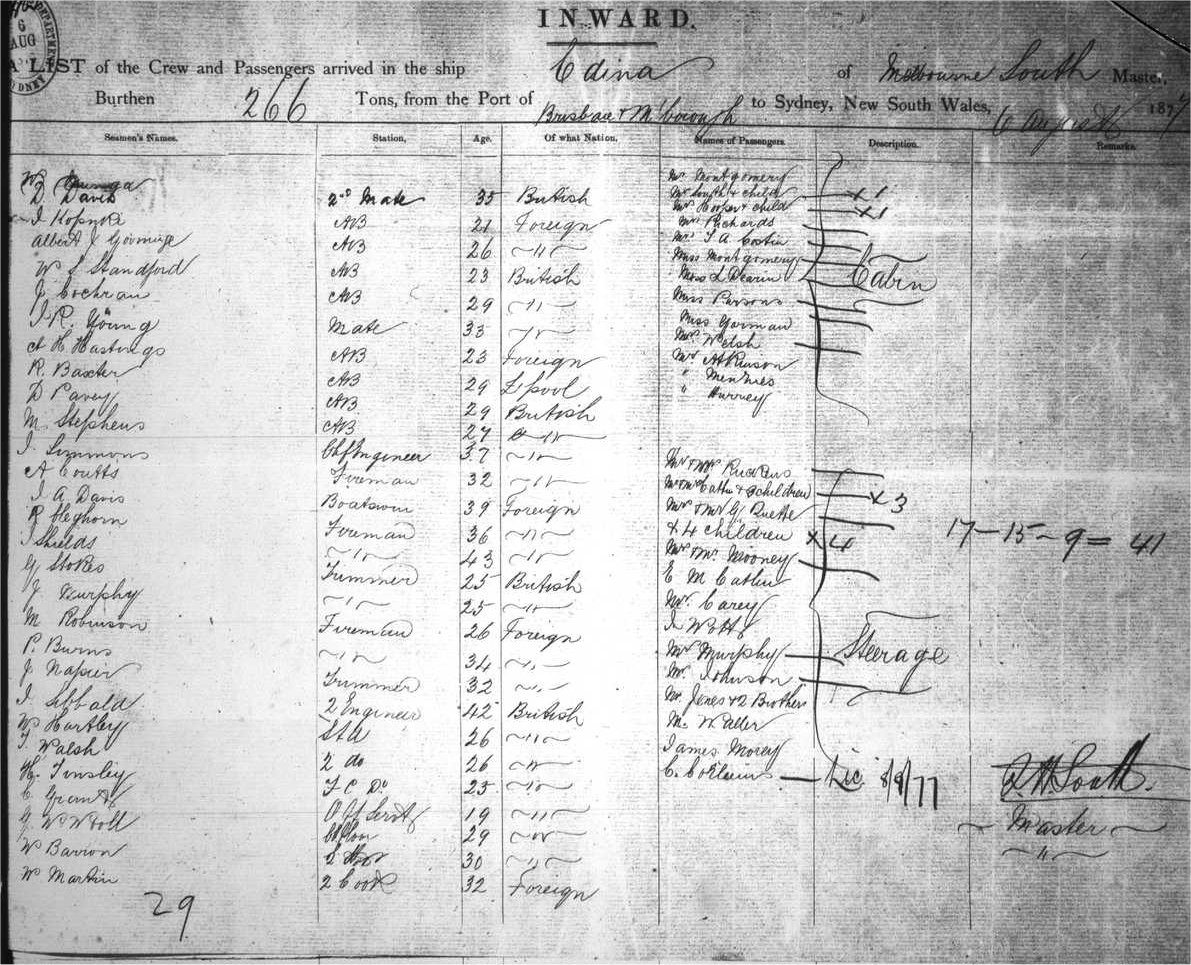 6
AUG
INWARD.
A LIST of the Crew and Passengers arrived in the ship Edina of Melbourne South Master,
Burthen 266 Tons, from the Port of Brisbane & M'borough to Sydney, New South Wales, 6 August 1877
Seamen's Names. Station, Age. Of what Nation. Names of Passengers. Description. Remarks.
D. Davis 2nd Mate 35 British
AB 21 Foreign
Albert J AB 26 " 
W J Standford AB 23 British
J Cochran AB 29 "
J. R. Young Mate 33 "
A H Hastings AB 23 Foreign
R. Baxter AB 29 L'pool
D Pavey AB 29 British
M. Stephens AB 27 "
J. Simmons Ch Engineer 37 "
A Coutts Fireman 32 "
J A Davis Boatswn 39 Foreign
R Cleghorn Fireman 36 "
J Shields " 43 "
G Stokes Trimmer 25 British
J Murphy " 25 "
M Robinson Fireman 26 Foreign
P. Burns " 34 "
J Napier Trimmer 32 "
J. Sibbald 2 Engineer 42 British
W Hartley Std 26 "
T. Walsh 2 do 26 "
H. Tinsley F C Do 25 "
C Grant 19 "
29 "
W Barron 2 30 "
W Martin 2 Cook 32 Foreign
29
Mr Montgomery
Mrs South & child x1
Mrs Hooper & child x1
Mrs Richards
Mr J A Costin
Miss Montgomery
Miss L Dearin
Miss Parsons
Miss Gorman
Mrs Welsh
Mr Atkinson
" Menzies
" Hurney
Cabin
Mr & Mrs Ruckens
Mr & Mrs & 3 children x3
Mr & Mrs G Ruette
& 4 children x4
Mr & Mrs Mooney
E M
Mr. Carey
J. Wotts
Mr Murphy
Mr. Johnson
Mr. Jones & 2 Brothers
Mr Waller
James Morey
C. Collins
Steerage
17 – 15 – 9 = 41
Lic 8/8/77
South.
Master
"